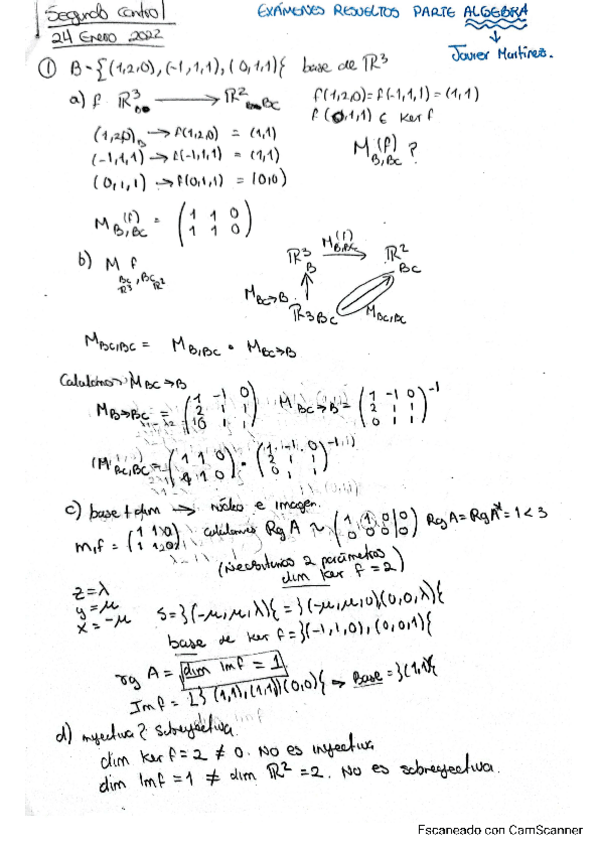 Segundo control
24 Enero 2022
EXÁMENES RESUELTOS PARTE ALGEBRA
↓
Javier Martínez.
① B = {(1,2,0), (-1,1,1), (0,1,1)} base de ℝ³
a) f: ℝ³_B → ℝ²_BC f(1,2,0) = f(-1,1,1) = (1,1)
f(0,1,1) ∈ Ker f
(1,2,0)_B → f(1,2,0) = (1,1)
(-1,1,1) → f(-1,1,1) = (1,1)
(0,1,1) → f(0,1,1) = (0,0)
M(f)_B,BC ?
M(f)_B,BC = (1 1 0
1 1 0)
b) M f_BC ℝ³, BC ℝ²
ℝ³_B M(f)_B,BC → ℝ²_BC
M_BC→B ↑
ℝ³_BC M_BC,BC
M_BC,BC = M_B,BC · M_BC→B
Calculamos M_BC→B
M_B→BC = (1 -1 0
2 1 1
0 1 1) M_BC→B = (1 -1 0
2 1 1
0 1 1)⁻¹
M_BC,BC = (1 1 0
1 1 0) · (1 -1 0
2 1 1
0 1 1)⁻¹
c) base + dim → núcleo e imagen.
m,f = (1 1 0
1 1 0) calculamos Rg A ~ (1 1 0|0
0 0 0|0) Rg A = Rg A* = 1 < 3
(Necesitamos 2 parámetros
dim Ker f = 2)
z = λ
y = μ
x = -μ
S = }(-μ, μ, λ){ = }(-μ, μ, 0)(0,0,λ){
base de Ker f = }(-1,1,0), (0,0,1){
rg A = dim Im f = 1
Im f = L}(1,1),(1,1)(0,0){ → Base = }(1,1){
d) inyectiva? sobreyectiva.
dim Ker f = 2 ≠ 0. No es inyectiva
dim Im f = 1 ≠ dim ℝ² = 2. No es sobreyectiva.
Escaneado con CamScanner